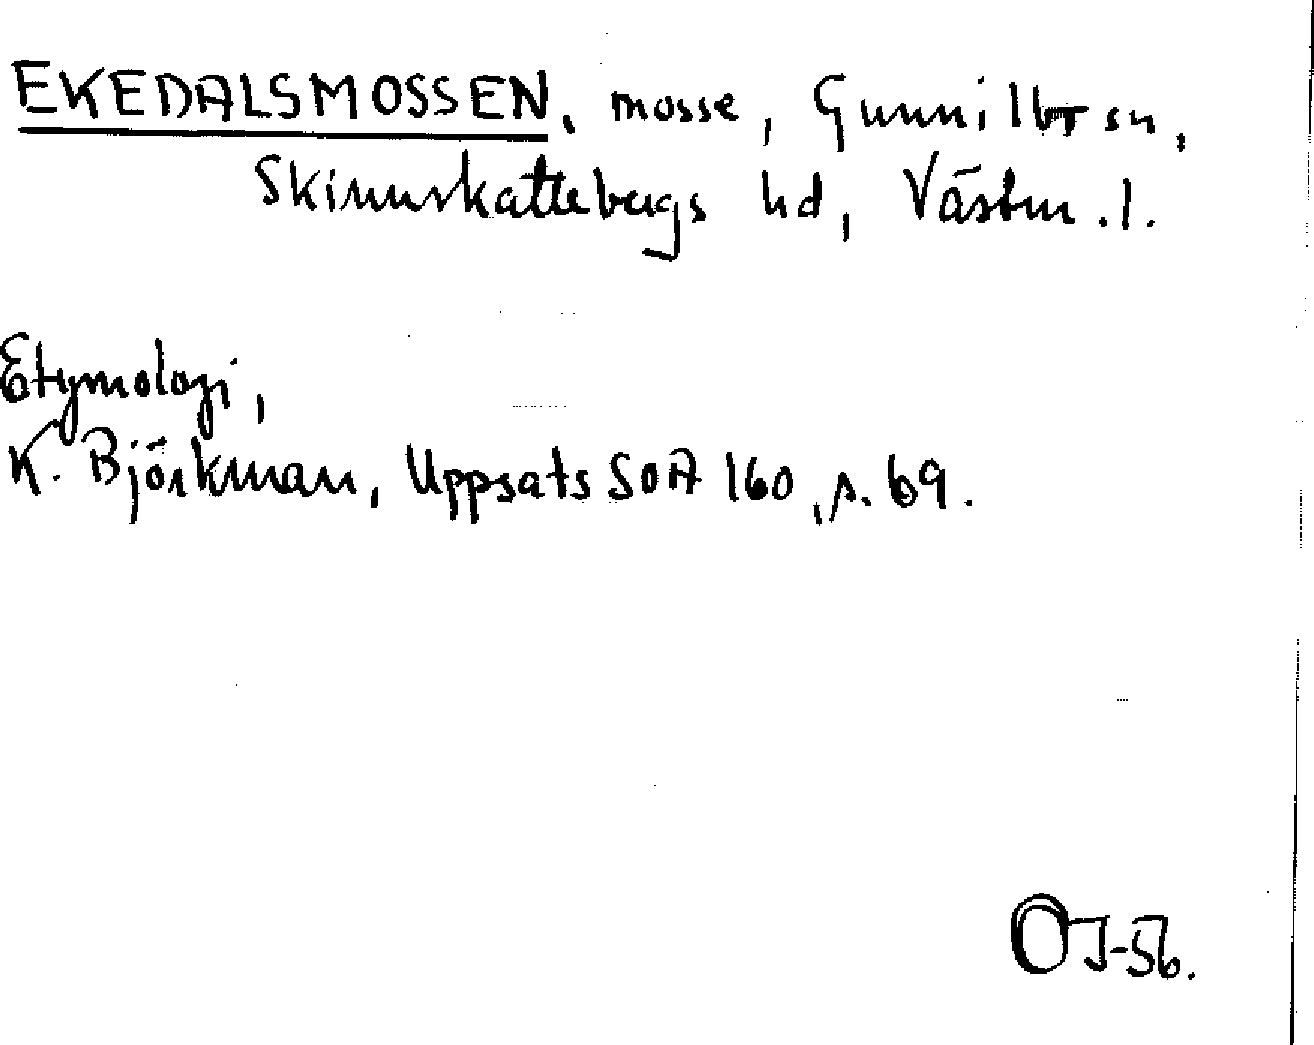 EKEDALSMOSSEN, mosse, Gunnilbo sn,
Skinnskattebergs hd, Västm.l.
Etymologi,
K. Björkman, Uppsats SOA 160, s. 69.
OJ-56.